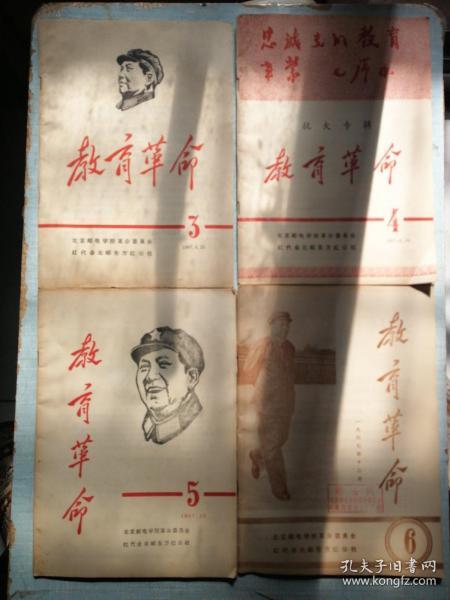 教育革命
3
1967.8.25
北京邮电学院革命委员会
红代会北邮东方红公社
忠诚党的教育
事業 毛泽东
抗大专辑
教育革命
4
北京邮电学院革命委员会
红代会北邮东方红公社
教育革命
5
1967.10
北京邮电学院革命委员会
红代会北邮东方红公社
教育革命
一九六七年十二月
6
北京邮电学院革命委员会
红代会北邮东方红公社
孔夫子旧书网